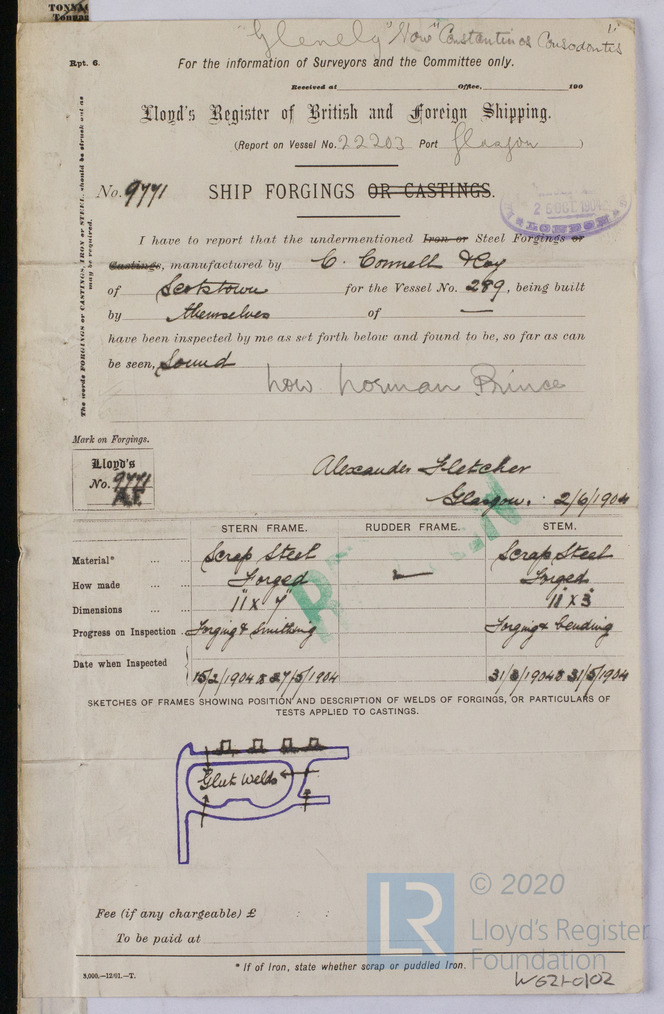 TONNAG
Tonnag
"Glenely" Now "Constantinos Consodontis"
Rpt. 6.
For the information of Surveyors and the Committee only.
Received at Office, 190
Lloyd's Register of British and Foreign Shipping.
(Report on Vessel No. 22203 Port Glasgow )
No. 9771 SHIP FORGINGS OR CASTINGS.
26 OCT. 1904
LONDON
The words FORGINGS or CASTINGS, IRON or STEEL, should be struck out as
may be required.
I have to report that the undermentioned Iron or Steel Forgings or
Castings, manufactured by C. Connell & Coy
of Scotstown for the Vessel No. 289, being built
by themselves of —
have been inspected by me as set forth below and found to be, so far as can
be seen, Sound
now Norman Prince
Mark on Forgings.
Lloyd's
No. 9771
A.F.
Alexander Fletcher
Glasgow. 2/6/1904
STERN FRAME. RUDDER FRAME. STEM.
Material* ... ... Scrap Steel Scrap Steel
How made ... ... Forged — Forged
Dimensions ... ... 11" x 7" 11" x 3"
Progress on Inspection .. Forging & Smithing Forging & bending
Date when Inspected 15/2/1904 & 27/5/1904 31/3/1904 & 31/5/1904
SKETCHES OF FRAMES SHOWING POSITION AND DESCRIPTION OF WELDS OF FORGINGS, OR PARTICULARS OF
TESTS APPLIED TO CASTINGS.
Glut Welds
Fee (if any chargeable) £ : :
To be paid at
* If of Iron, state whether scrap or puddled Iron.
3,000.—12/01.—T.
LR
© 2020
Lloyd's Register
Foundation
W621-0102